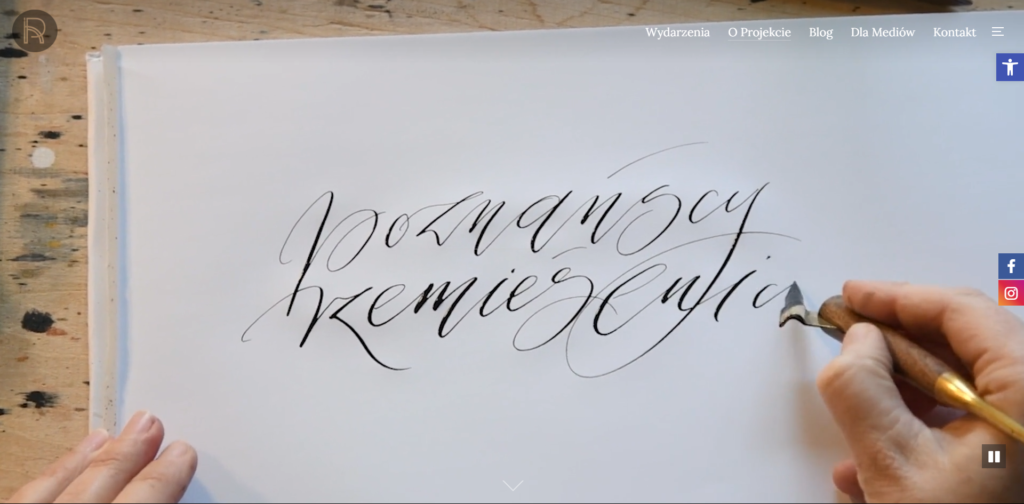 Wydarzenia O Projekcie Blog Dla Mediów Kontakt
poznańscy
rzemieślnic